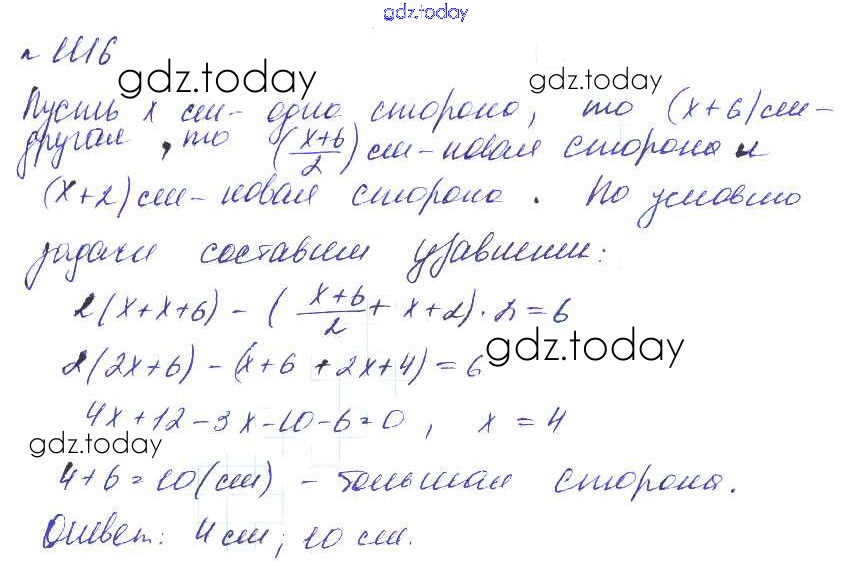 gdz.today
n 1116
gdz.today
Пусть x см - одна сторона, то (x+6) см -
другая, то (x+6/2) см - новая сторона и
(x+2) см - новая сторона. По условию
задачи составим уравнение:
2(x+x+6) - (x+6/2 + x+2) · 2 = 6
gdz.today
2(2x+6) - (x+6+2x+4) = 6
4x+12-3x-10-6=0, x=4
gdz.today
4+6=10(см) - большая сторона.
Ответ: 4 см; 10 см.